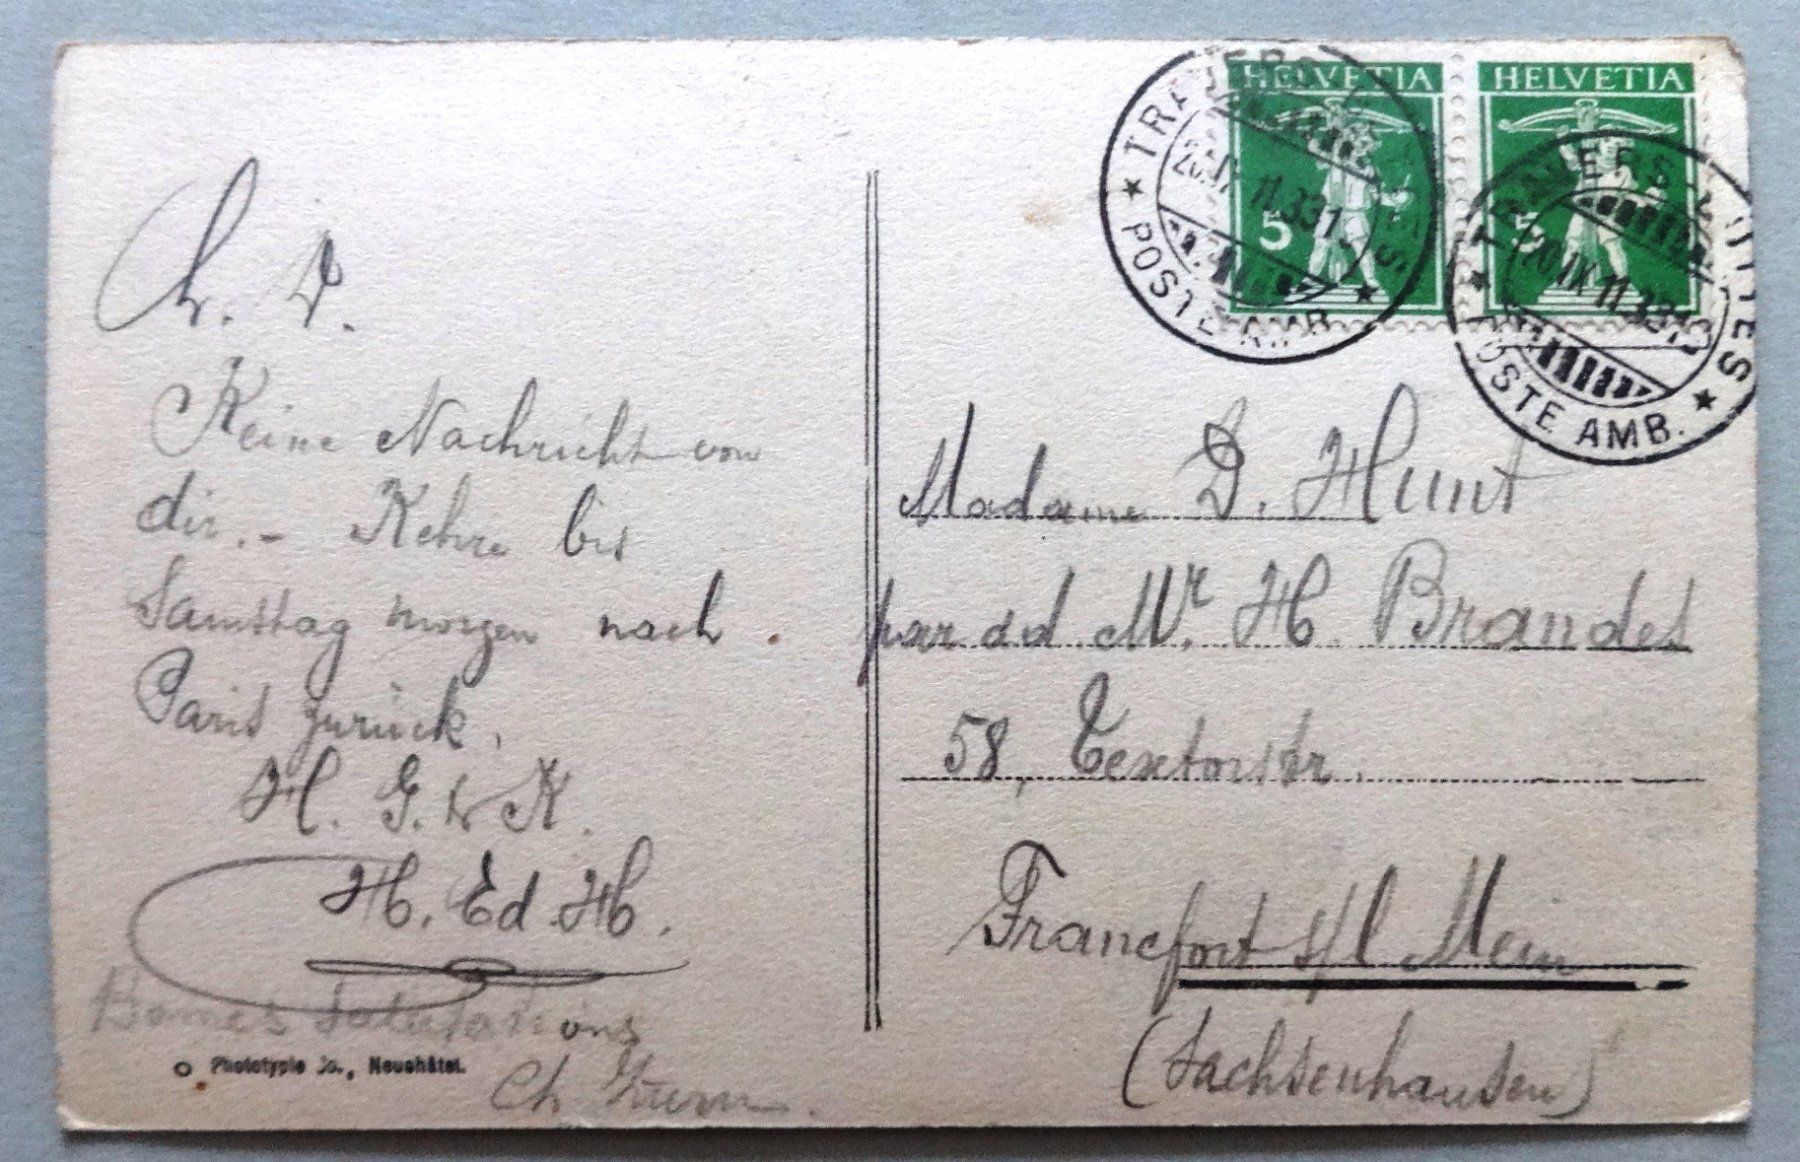 L. D.
Keine Nachricht von
dir. – Kehre bis
Samstag morgen nach
Paris zurück.
H. G. & K.
H. Ed. H.
Bonnes Salutations
Ch.
Phototypie Co., Neuchâtel.
HELVETIA
5
HELVETIA
5
POSTE AMB.
TRAVERS
20.IX.11.331
POSTE AMB.
Madame D. Hunt
par ad. Mr. H. Brandes
58, Textorstr.
Francfort s/l Mein
(Sachsenhausen)